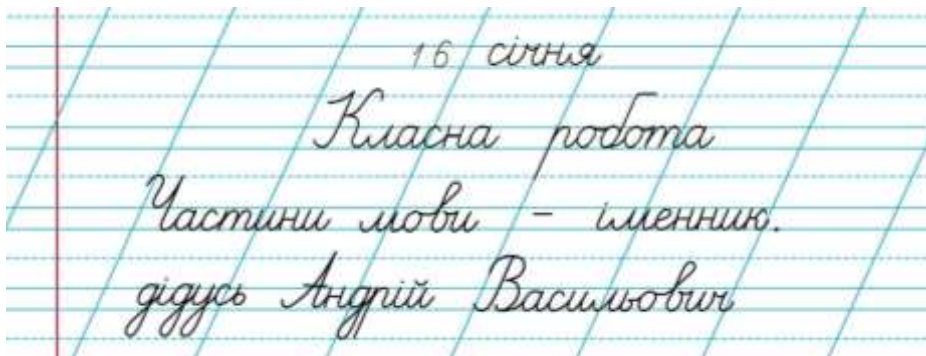 16 січня
Класна робота
Частини мови - іменник.
дідусь Андрій Васильович